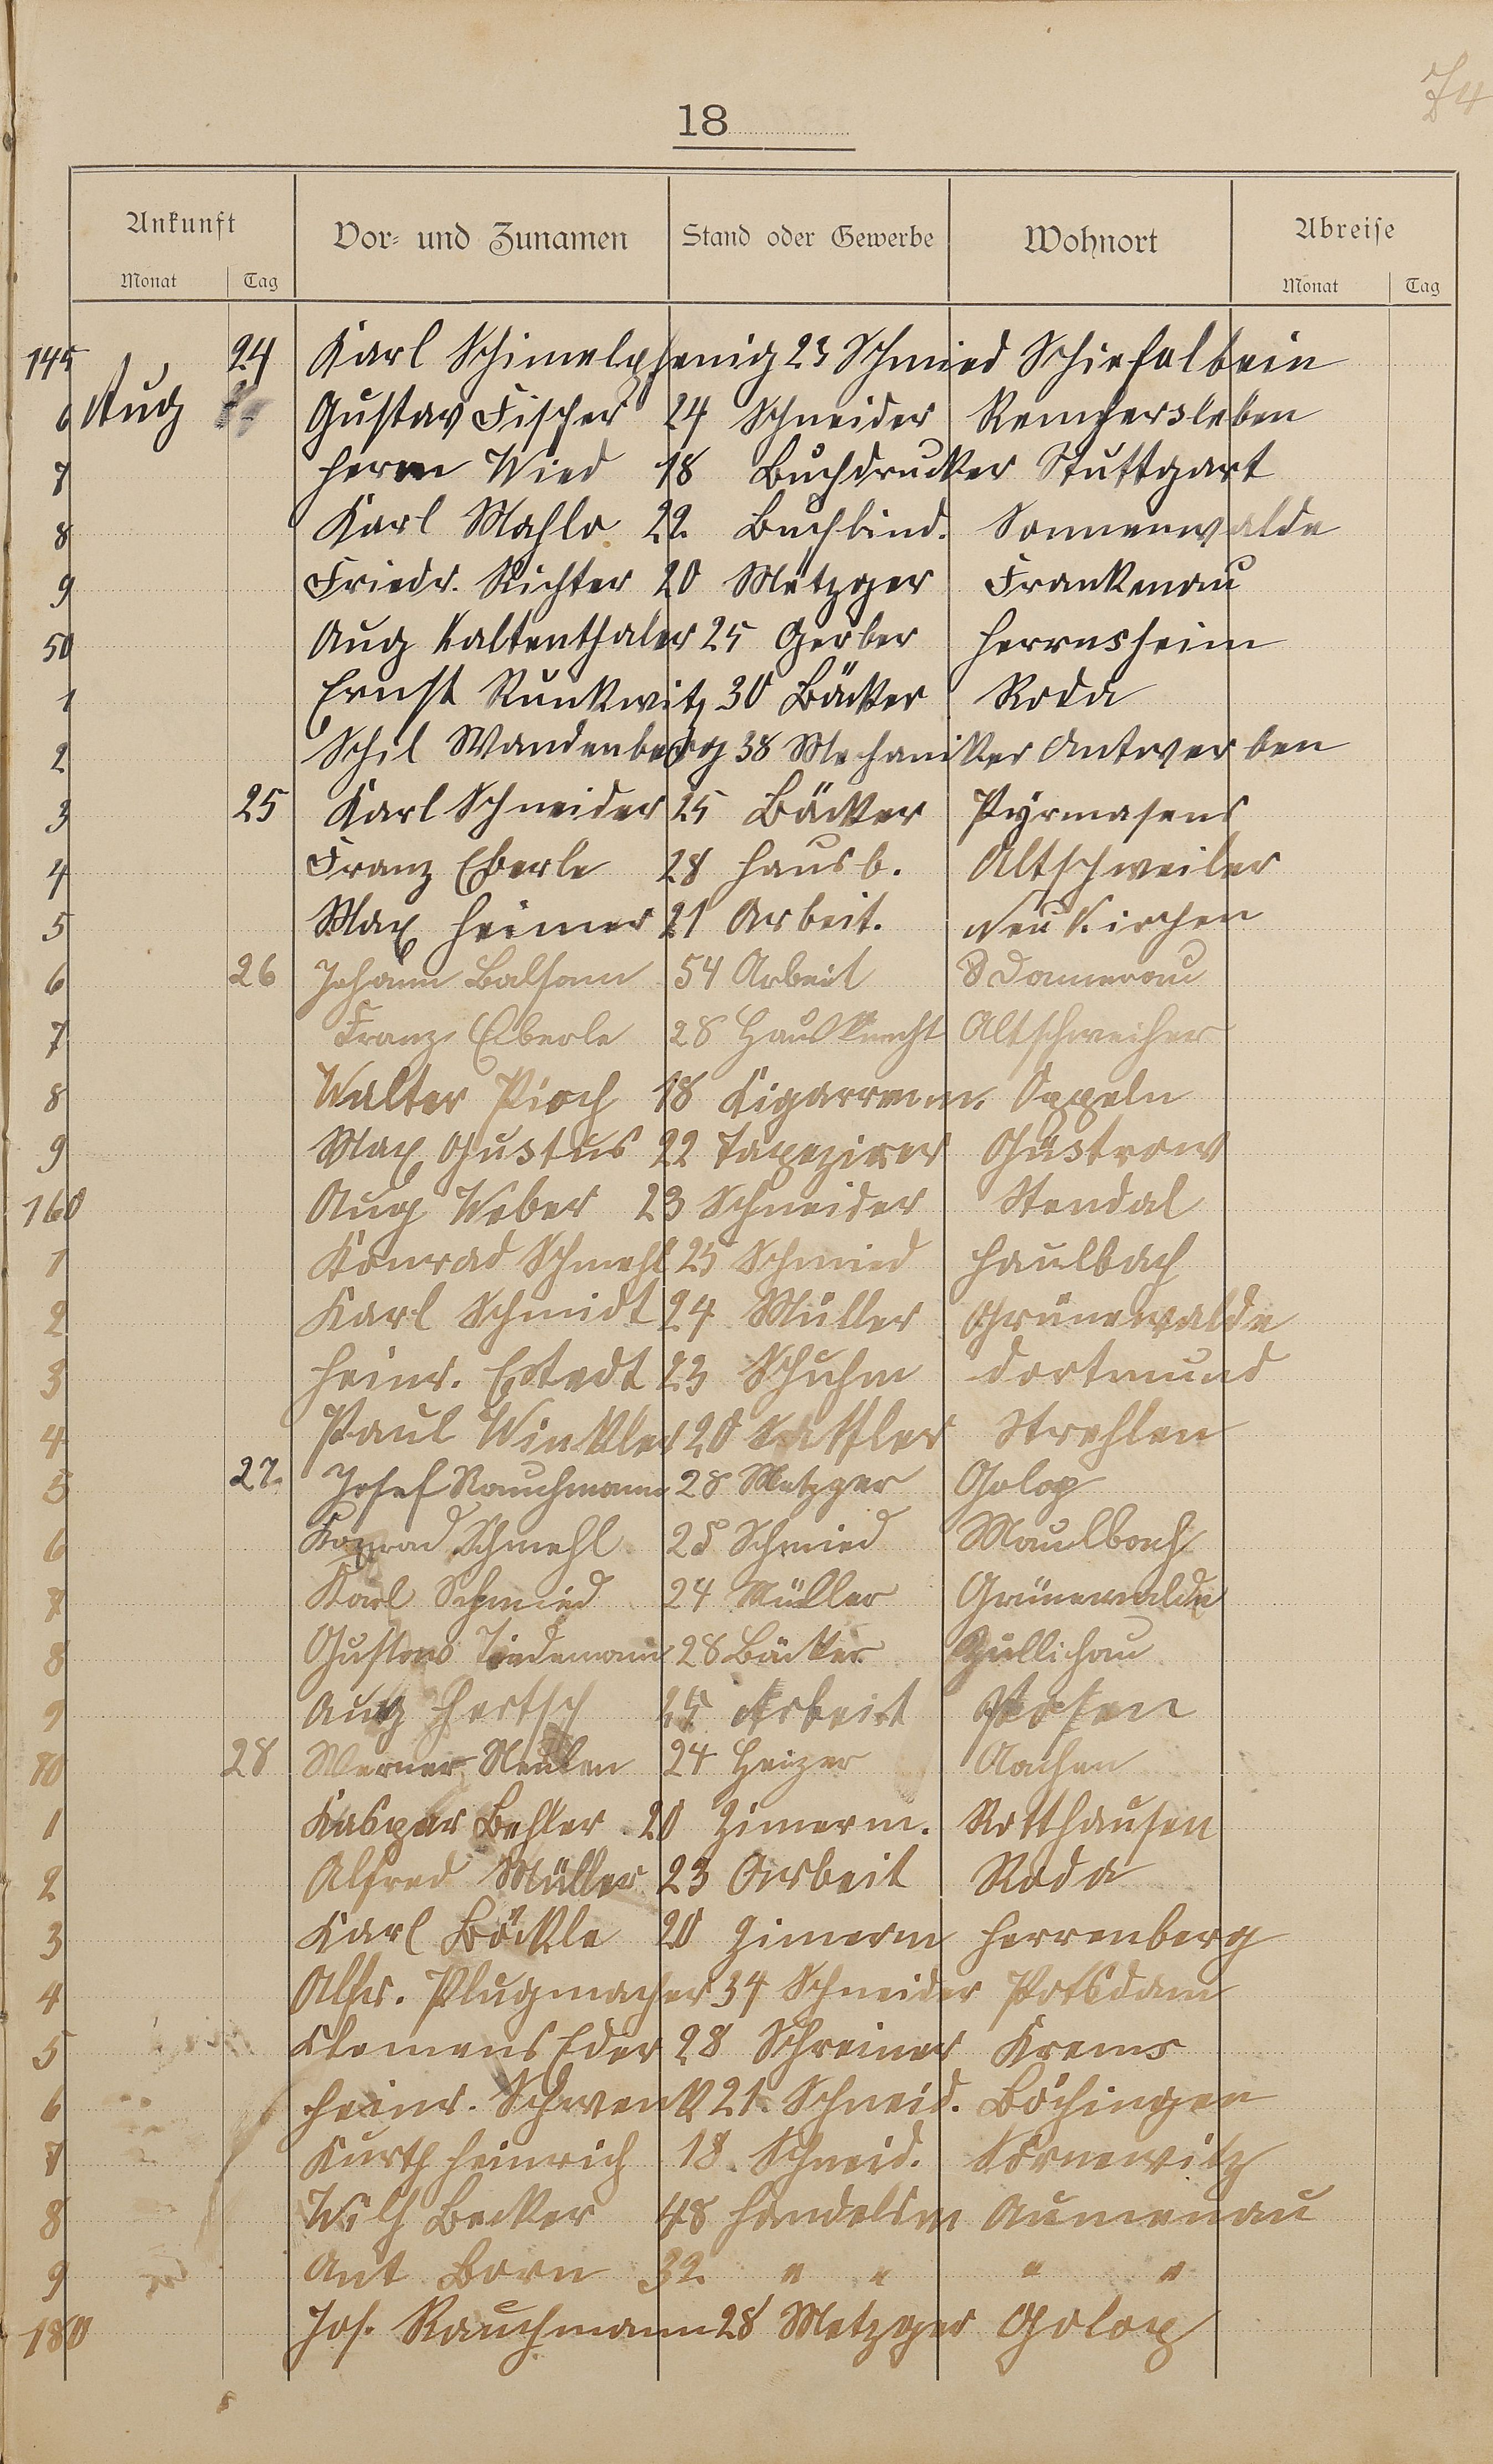 74
18
Ankunft Vor- und Zunamen Stand oder Gewerbe Wohnort Abreise
Monat Tag Monat Tag
145 24 Karl Schimelpfenig 23 Schmied Schiefelbein
6 Aug Gustav Fischer 24 Schneider Remkersleben
7 Herm Wied 18 Buchdrucker Stuttgart
8 Karl Mahlo 22 Buchbind. Sonnenwalde
9 Friedr. Richter 20 Metzger Frankenau
50 Aug Kaltenthaler 25 Gerber Herrnsheim
1 Ernst Runkwitz 30 Bäcker Roda
2 Schil Wandenberg 38 Mechaniker Antwerben
3 25 Karl Schneider 25 Bäcker Pyrmasens
4 Franz Eberle 28 Hausb. Altschweiler
5 Max Heimer 21 Arbeit. Neukirchen
6 26 Johann Balsam 54 Arbeit Damerau
7 Franz Eberle 28 Hausknecht Altschweiher
8 Walter Pioch 18 Cigarrenm. Oppeln
9 Max Gustus 22 Tapezirer Güstrow
160 Aug Weber 23 Schneider Stendal
1 Konrad Schmehl 25 Schmied Haulbach
2 Karl Schmidt 24 Müller Grünewalde
3 Heinr. Estedt 23 Schuhm Dortmund
4 Paul Winkler 20 Sattler Strehlen
5 27. Josef Rauchmann 28 Metzger Golop
6 Konrad Schmehl 25 Schmied Maulbach
7 Karl Schmied 24 Müller Grünewalde
8 Gustav Tiedemann 28 Bäcker Züllichau
9 Aug Hertsch 25 Arbeit Posen
70 28 Werner Neulen 24 Heizer Aachen
1 Kaspar Behler 20 Zimerm. Rotthausen
2 Alfred Müller 23 Arbeit Roda
3 Karl Böckle 20 Zimerm Herrenberg
4 Alfr. Plugmacher 34 Schneider Potsdam
5 Clemens Eder 28 Schreiner Krems
6 Heinr. Schwenk 21. Schneid. Böchingen
7 Kurth Heinrich 18 Schneid. Sörnewitz
8 Wilh Becker 48 Handelsm Aumenau
9 Ant Born 32 " " " "
180 Jos. Rauchmann 28 Metzger Golop